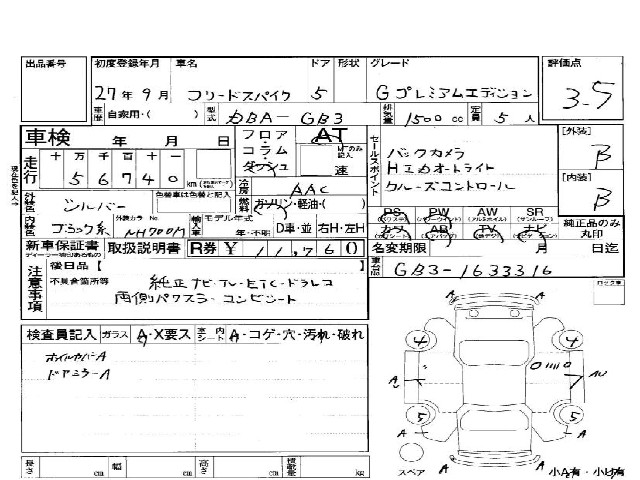 出品番号 初度登録年月 車名 ドア 形状 グレード 評価点
27年9月 フリードスパイク 5 Gプレミアムエディション 3.5
車歴 自家用・( ) 型式 DBA-GB3 排気量 1500 cc 定員 5 人
車検 年 月 日 フロア コラム ダッシュ AT MTのみ記入 速
走行 十 万 千 百 十 一
5 6 7 4 0 km
セールスポイント
バックカメラ
HIDオートライト
クルーズコントロール
[外装] B
[内装] B
外装色 シルバー 色替車は色替と記入
冷房 AAC
燃料 ガソリン・軽油・( )
内装色 ブラック系 外装カラーNo. NH700M 輸入車 モデル年式 年・不明 D車・並 右H・左H
PS PW AW SR
(パワステ) (パワーウインド) (アルミホイル) (サンルーフ)
カワ AB TV ナビ
純正品のみ丸印
新車保証書 取扱説明書 R券 ¥ 11,760
名変期限 月 日迄
注意事項 後日品【 】
不具合箇所等
純正ナビ・TV・ETC・ドラレコ
両側パワスラ・コンビシート
車台No. GB3-1633316
検査員記入 ガラス A・X要ス 室内シート A・コゲ・穴・汚れ・破れ
ホイルカバーA
ドアミラーA
4 4
A AU
5 5
A A
A A
スペア
小A有・小U有
長さ cm 幅 cm 高さ cm 積載量 kg